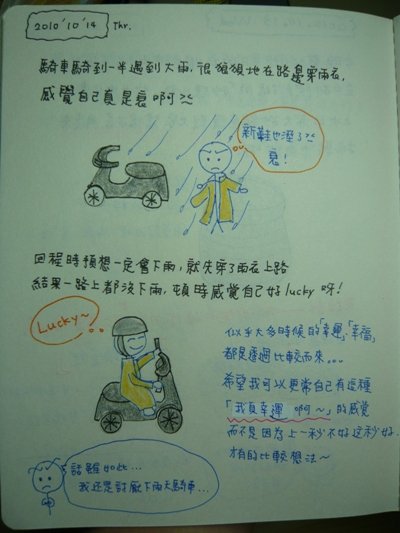 2010'10'14 Thr.
騎車騎到一半遇到大雨,很狼狽地在路邊穿雨衣,
感覺自己真是衰啊><
新鞋也溼了><
衰!
回程時預想一定會下雨,就先穿了雨衣上路
結果一路上都沒下雨,頓時感覺自己好lucky呀!
Lucky~
似乎大多時候的「幸運」、「幸福」
都是透過比較而來...
希望我可以更常自己有這種
「我真幸運 啊~」的感覺
而不是因為上一秒不好這秒好
才有的比較想法~
話雖如此...
我还是討厭下雨天騎車...